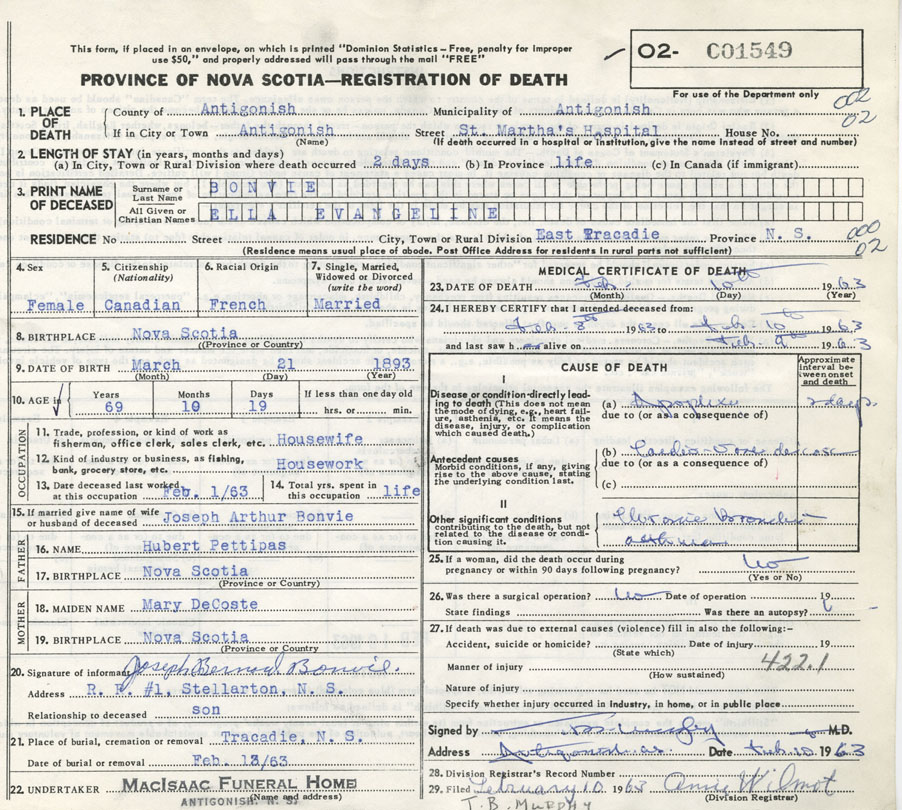 This form, if placed in an envelope, on which is printed "Dominion Statistics – Free, penalty for improper
use $50," and properly addressed will pass through the mail "FREE"
PROVINCE OF NOVA SCOTIA—REGISTRATION OF DEATH
02- C01549
For use of the Department only
002
02
1. PLACE OF DEATH
County of Antigonish Municipality of Antigonish
If in City or Town Antigonish Street St. Martha's Hospital House No.
(Name) (If death occurred in a hospital or institution, give the name instead of street and number)
2. LENGTH OF STAY (in years, months and days)
(a) In City, Town or Rural Division where death occurred 2 days (b) In Province life (c) In Canada (if immigrant)
3. PRINT NAME OF DECEASED
Surname or Last Name BONVIE
All Given or Christian Names ELLA EVANGELINE
RESIDENCE No Street City, Town or Rural Division East Tracadie Province N. S.
000
02
(Residence means usual place of abode. Post Office Address for residents in rural parts not sufficient)
4. Sex Female
5. Citizenship (Nationality) Canadian
6. Racial Origin French
7. Single, Married, Widowed or Divorced (write the word) Married
8. BIRTHPLACE Nova Scotia
(Province or Country)
9. DATE OF BIRTH March 21 1893
(Month) (Day) (Year)
10. AGE in Years Months Days If less than one day old
69 10 19 hrs. or min.
OCCUPATION
11. Trade, profession, or kind of work as fisherman, office clerk, sales clerk, etc. Housewife
12. Kind of industry or business, as fishing, bank, grocery store, etc. Housework
13. Date deceased last worked at this occupation Feb. 1/63
14. Total yrs. spent in this occupation life
15. If married give name of wife or husband of deceased Joseph Arthur Bonvie
FATHER
16. NAME Hubert Pettipas
17. BIRTHPLACE Nova Scotia
(Province or Country)
MOTHER
18. MAIDEN NAME Mary DeCoste
19. BIRTHPLACE Nova Scotia
(Province or Country)
20. Signature of informant Joseph Bernard Bonvie.
Address R. R. #1, Stellarton, N. S.
Relationship to deceased son
21. Place of burial, cremation or removal Tracadie, N. S.
Date of burial or removal Feb. 13/63
22. UNDERTAKER MacIsaac Funeral Home
(Name and address)
ANTIGONISH, N. S.
MEDICAL CERTIFICATE OF DEATH
23. DATE OF DEATH Feb. 10th 1963
(Month) (Day) (Year)
24. I HEREBY CERTIFY that I attended deceased from:
Feb. 8th 1963 to Feb. 10th 1963
and last saw h er alive on Feb. 9th 1963
CAUSE OF DEATH
Approximate interval between onset and death
I
Disease or condition directly leading to death (This does not mean the mode of dying, e.g., heart failure, asthenia, etc. It means the disease, injury, or complication which caused death.)
(a) Apoplexy 2 days
due to (or as a consequence of)
Antecedent causes
Morbid conditions, if any, giving rise to the above cause, stating the underlying condition last.
(b) Cardio-Vasc disease
due to (or as a consequence of)
(c)
II
Other significant conditions contributing to the death, but not related to the disease or condition causing it.
Chronic Bronchial
asthma
25. If a woman, did the death occur during pregnancy or within 90 days following pregnancy? No
(Yes or No)
26. Was there a surgical operation? No Date of operation 19
State findings Was there an autopsy?
27. If death was due to external causes (violence) fill in also the following:–
Accident, suicide or homicide? Date of injury 19
(State which)
Manner of injury 422.1
(How sustained)
Nature of injury
Specify whether injury occurred in industry, in home, or in public place
Signed by M.D.
Address Antigonish Date Feb. 10 1963
28. Division Registrar's Record Number
29. Filed February 10 1963 Annie Wilmot
(Division Registrar)
T.B. MURPHY